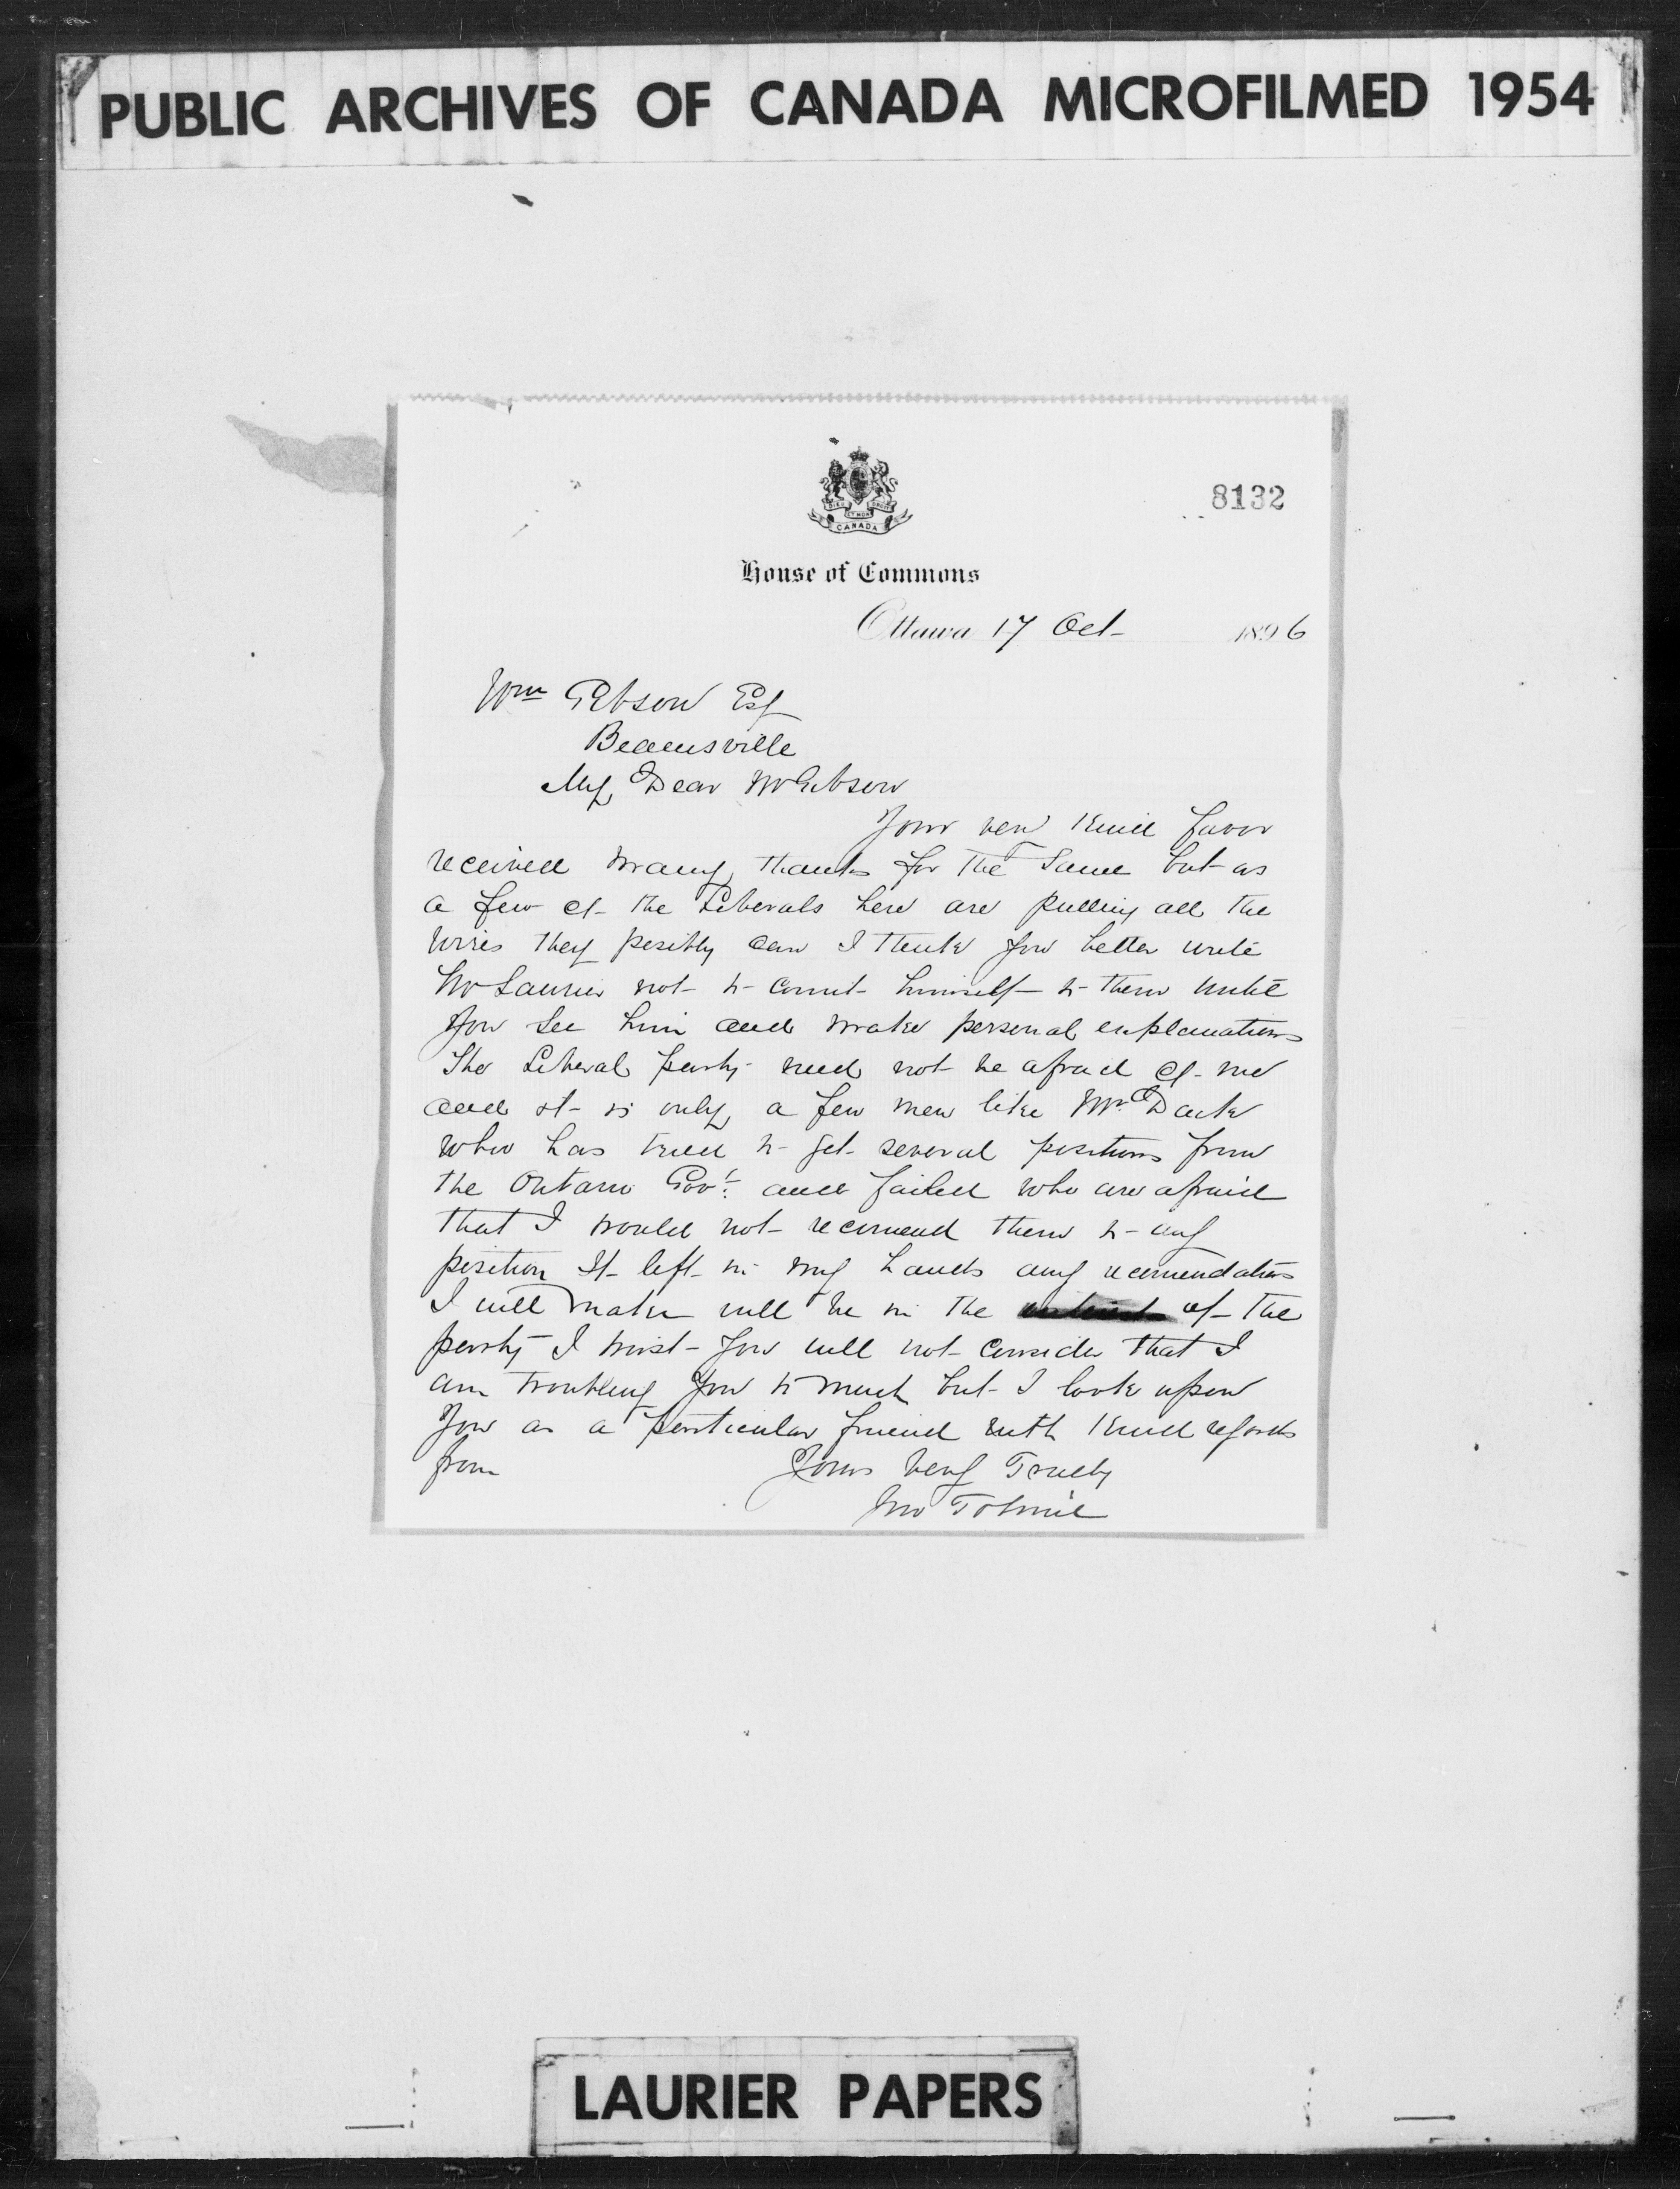 PUBLIC ARCHIVES OF CANADA MICROFILMED 1954
8132
DIEU ET MON DROIT
CANADA
House of Commons
Ottawa 17 Oct 1896
Wm Gibson Esq
Beamsville
My Dear Mr Gibson
Your very kind favor
received many thanks for the same but as
a few of the Liberals here are pulling all the
wires they posibly can I think you better write
Mr Laurier not to comit himself to them until
you see him and make personal explanations
The Liberal party need not be afraid of me
and it is only a few men like Mr
who has tried to get several positions from
the Ontario Govt. and failed who are afraid
that I would not recomend them to any
position If left in my hands any recomendations
I will make will be in the of the
party I trust you will not consider that I
am troubling you to much but I look upon
you as a particular friend with kind regards
from Yours very Truely
Jno Tolmie
LAURIER PAPERS